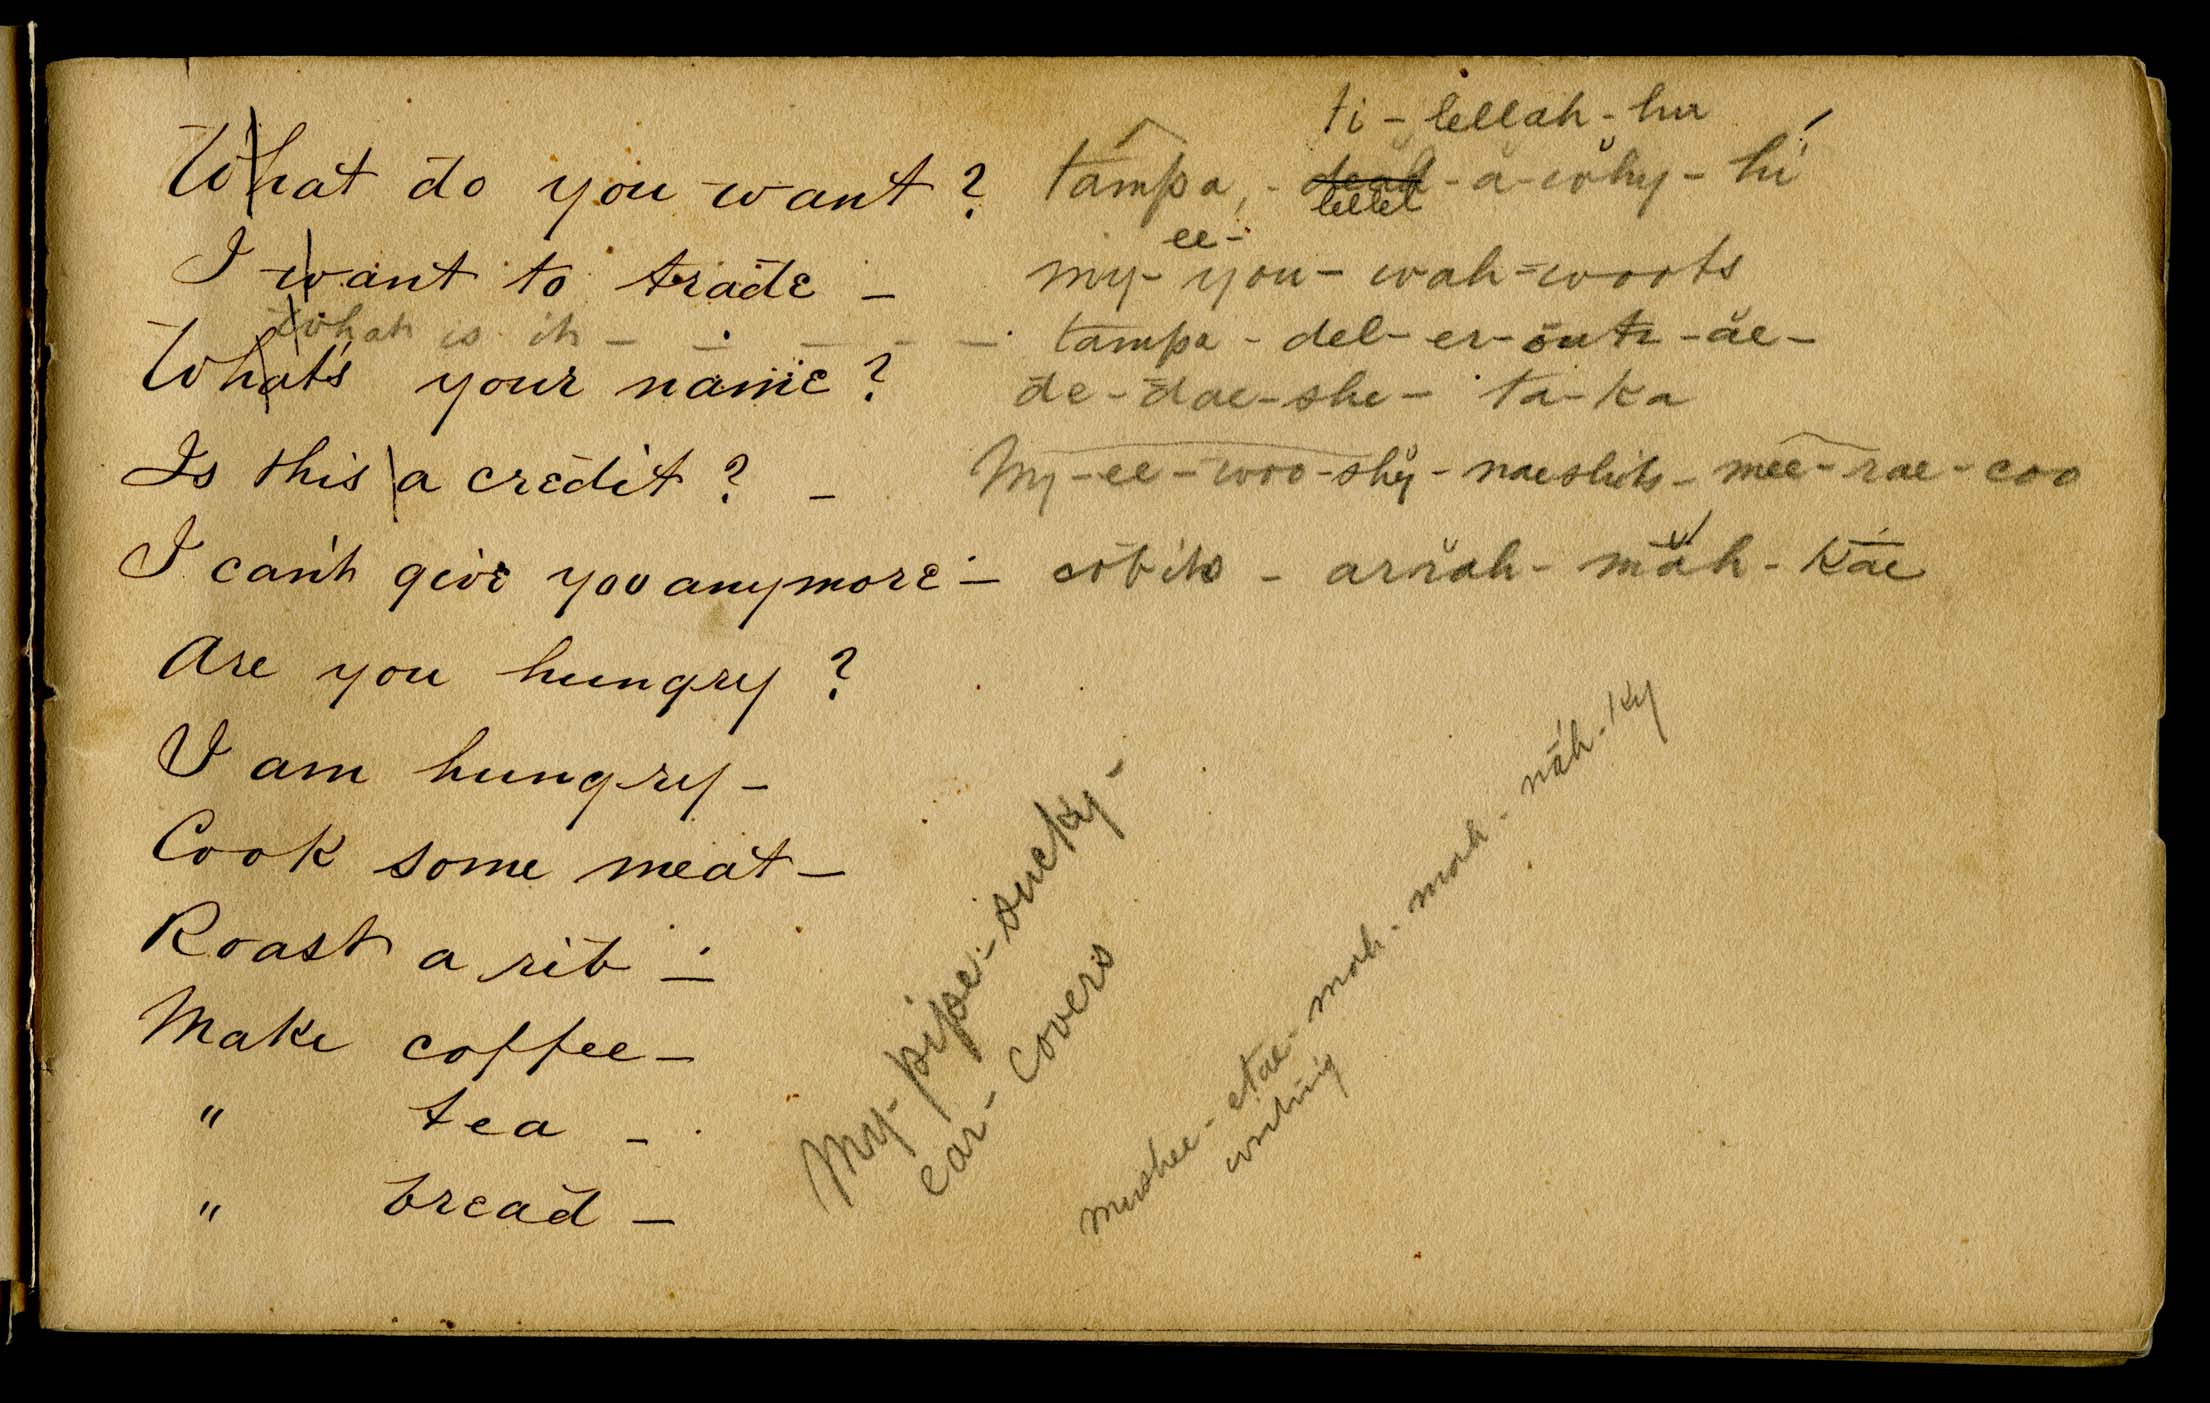 ti - lellah - hu
What do you want? tampa, - dead - a - why - hi
lellel
ee -
I want to trade - my - you - wah - woots
What is it - - - - - - tampa - del - er - outz - ae -
What's your name? de - dae - she - ta - ka
Is this a credit? - My - ee - woo - shy - naeshits - mee - rae - coo
I can't give you anymore - cobits - arrah - mah - kae
Are you hungry?
I am hungry -
Cook some meat -
Roast a rib -
Make coffee -
" tea -
" bread -
My - pipe - sucky -
ear - covers
mushee - etae - mah - mah - náh - ky
writing